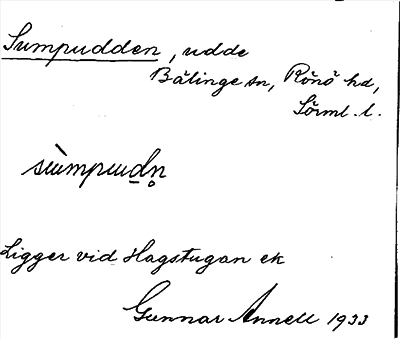 Sumpudden, udde
Bälinge sn, Rönö hd,
Sörml. l.
sùmpudn̥
Ligger vid Hagstugan ek
Gunnar Annell 1933